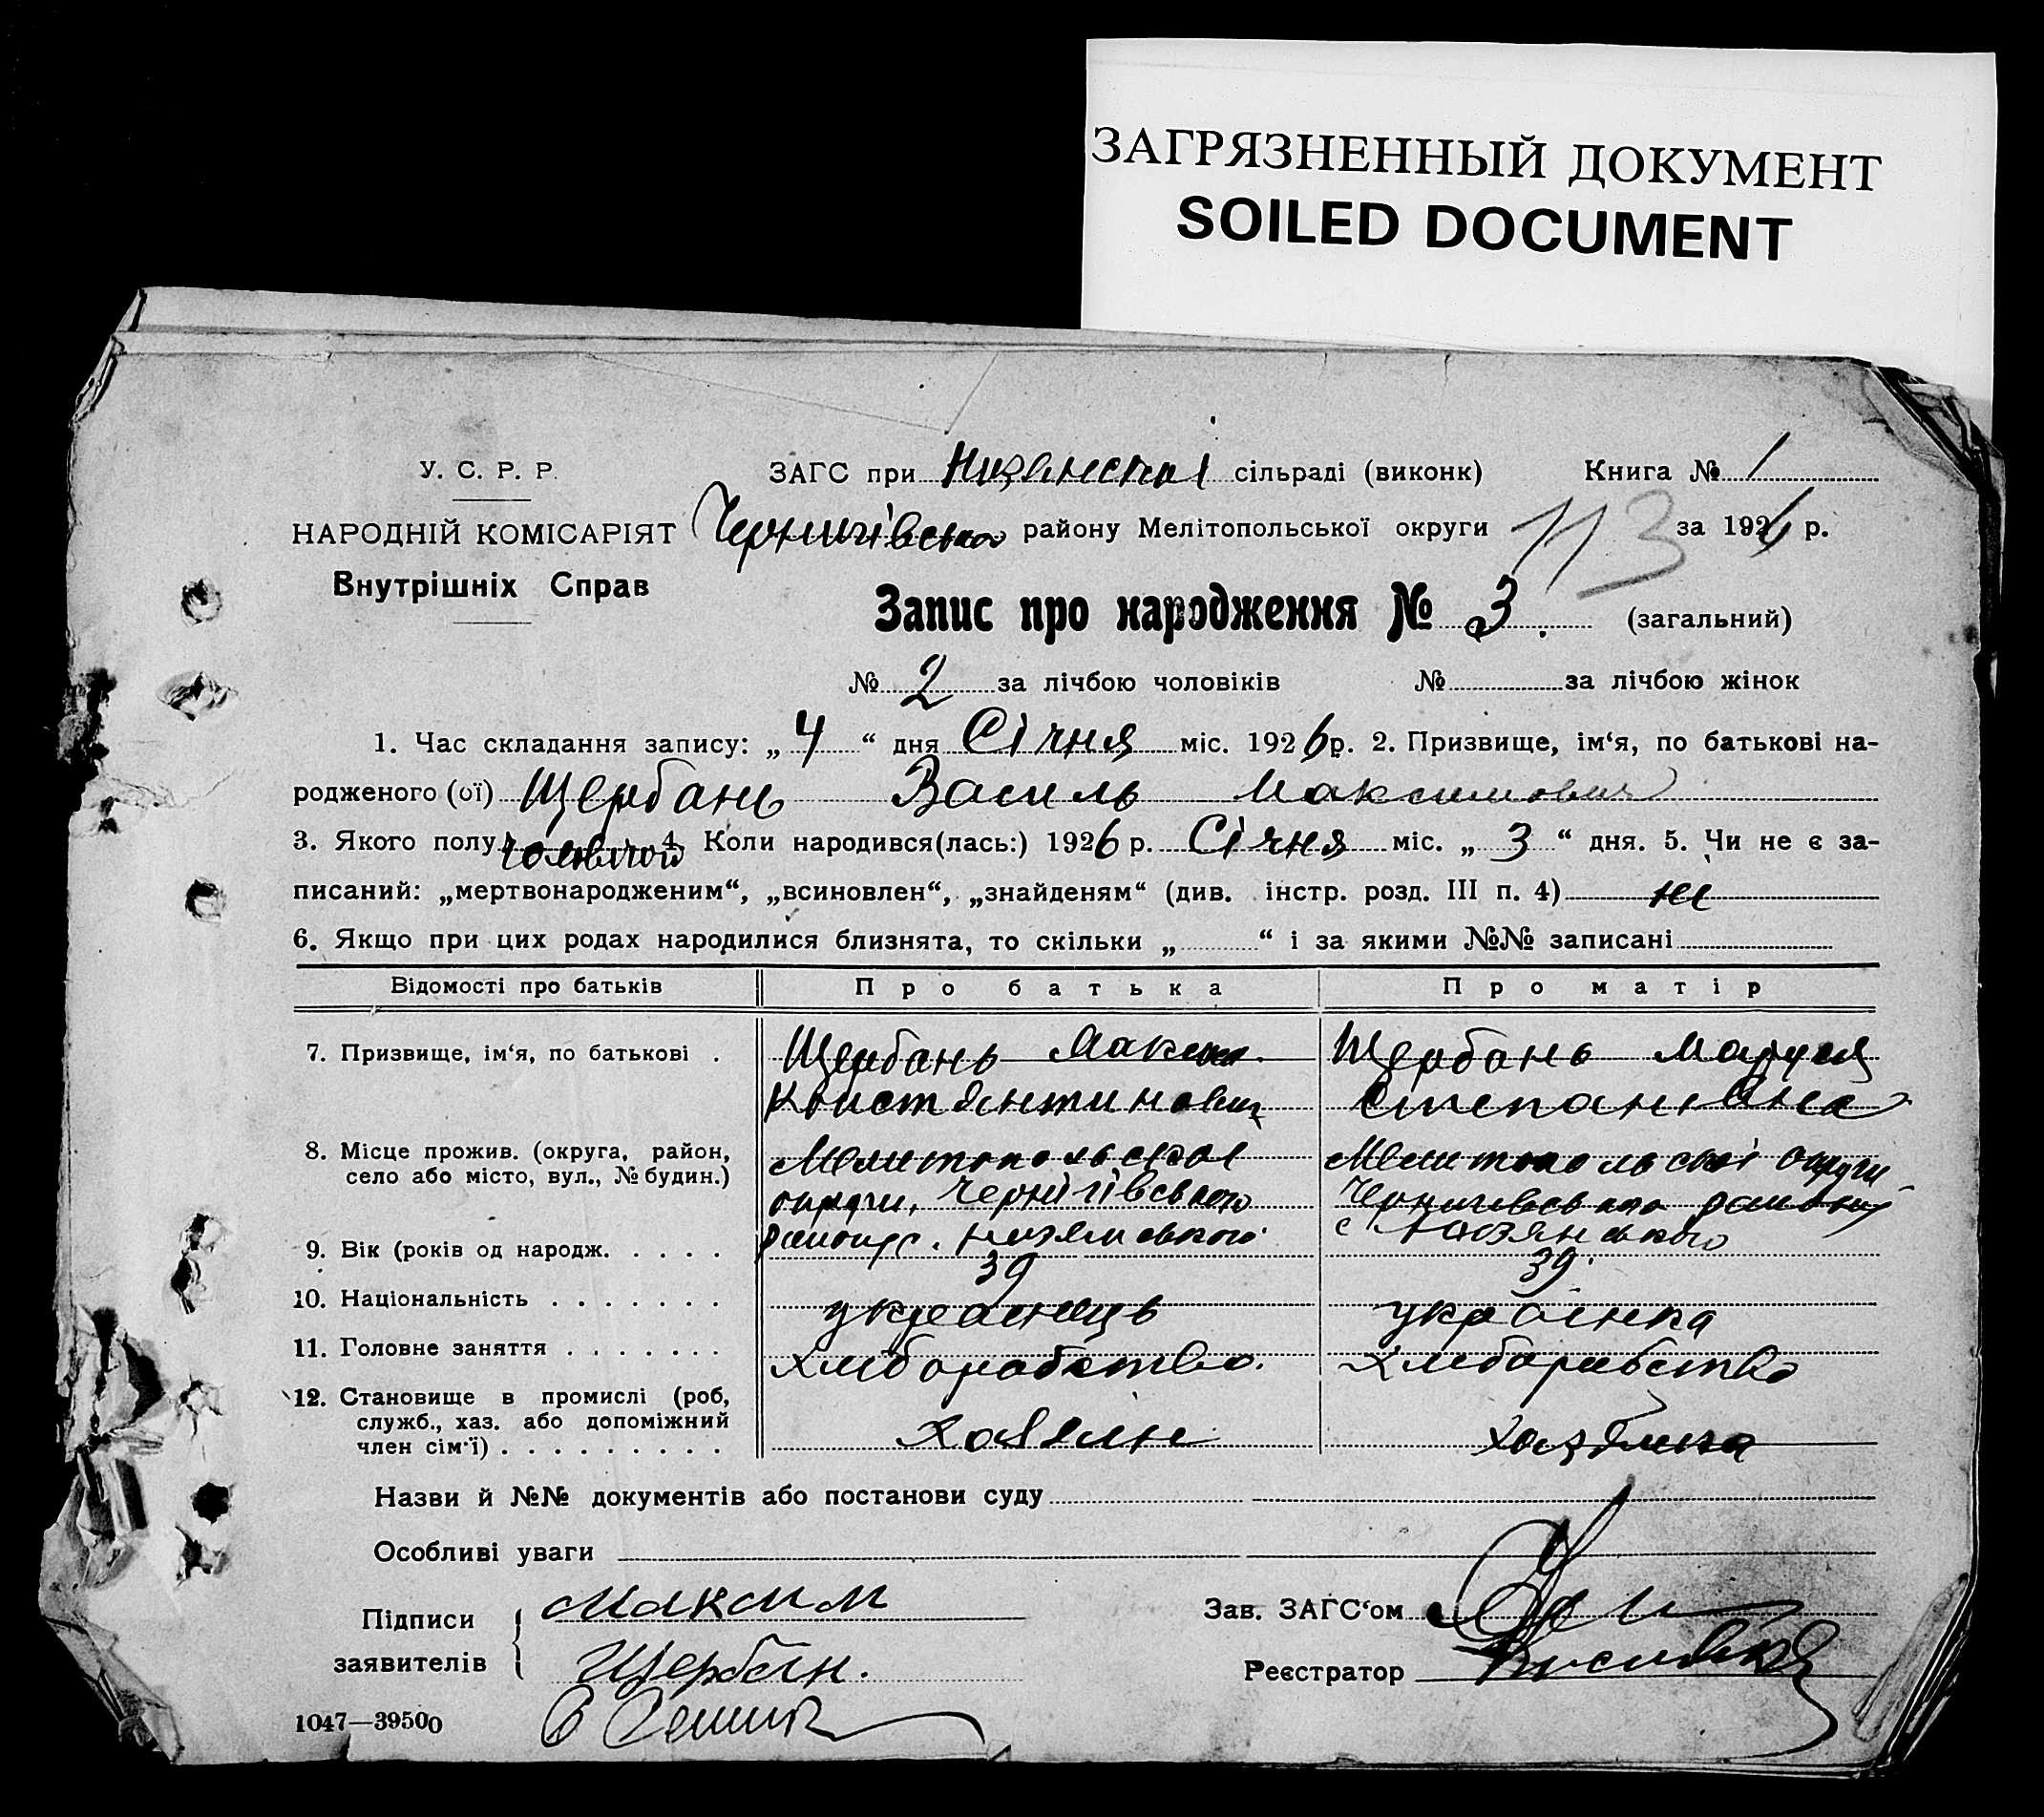 ЗАГРЯЗНЕННЫЙ ДОКУМЕНТ
SOILED DOCUMENT
У. С. Р. Р. ЗАГС при сільраді (виконк) Книга № 1
НАРОДНІЙ КОМІСАРІЯТ району Мелітопольської округи 113 за 1926 р.
Внутрішніх Справ
Запис про народження № 3. (загальний)
№ 2 за лічбою чоловіків № за лічбою жінок
1. Час складання запису: „ 4 “ дня Січня міс. 1926 р. 2. Призвище, ім‘я, по батькові на-
родженого (ої) Щербань Василь Максимович
3. Якого полу 4. Коли народився(лась:) 1926 р. Січня міс. „ 3 “ дня. 5. Чи не є за-
писаний: „мертвонародженим“, „всиновлен“, „знайденям“ (див. інстр. розд. III п. 4) ні
6. Якщо при цих родах народилися близнята, то скільки „ “ і за якими №№ записані
Відомості про батьків Про батька Про матір
7. Призвище, ім‘я, по батькові . Щербань Максим Щербань Маруся
Констянтинович
8. Місце прожив. (округа, район, Мелитопольскої Мелитопольскі округи
село або місто, вул., № будин.) округи, Чернігівського
9. Вік (років од народж. . . . . 39 39.
10. Національність . . . . . . . українець українка
11. Головне заняття . . . . . . . хлиборобство. хлиборобство
12. Становище в промислі (роб, служб., хаз. або допоміжний член сім‘ї) . . . . . . . . . хазяін хазяйка
Назви й №№ документів або постанови суду
Особливі уваги
Підписи Максим Зав. ЗАГС‘ом
заявителів Щербан. Реєстратор
1047—39500